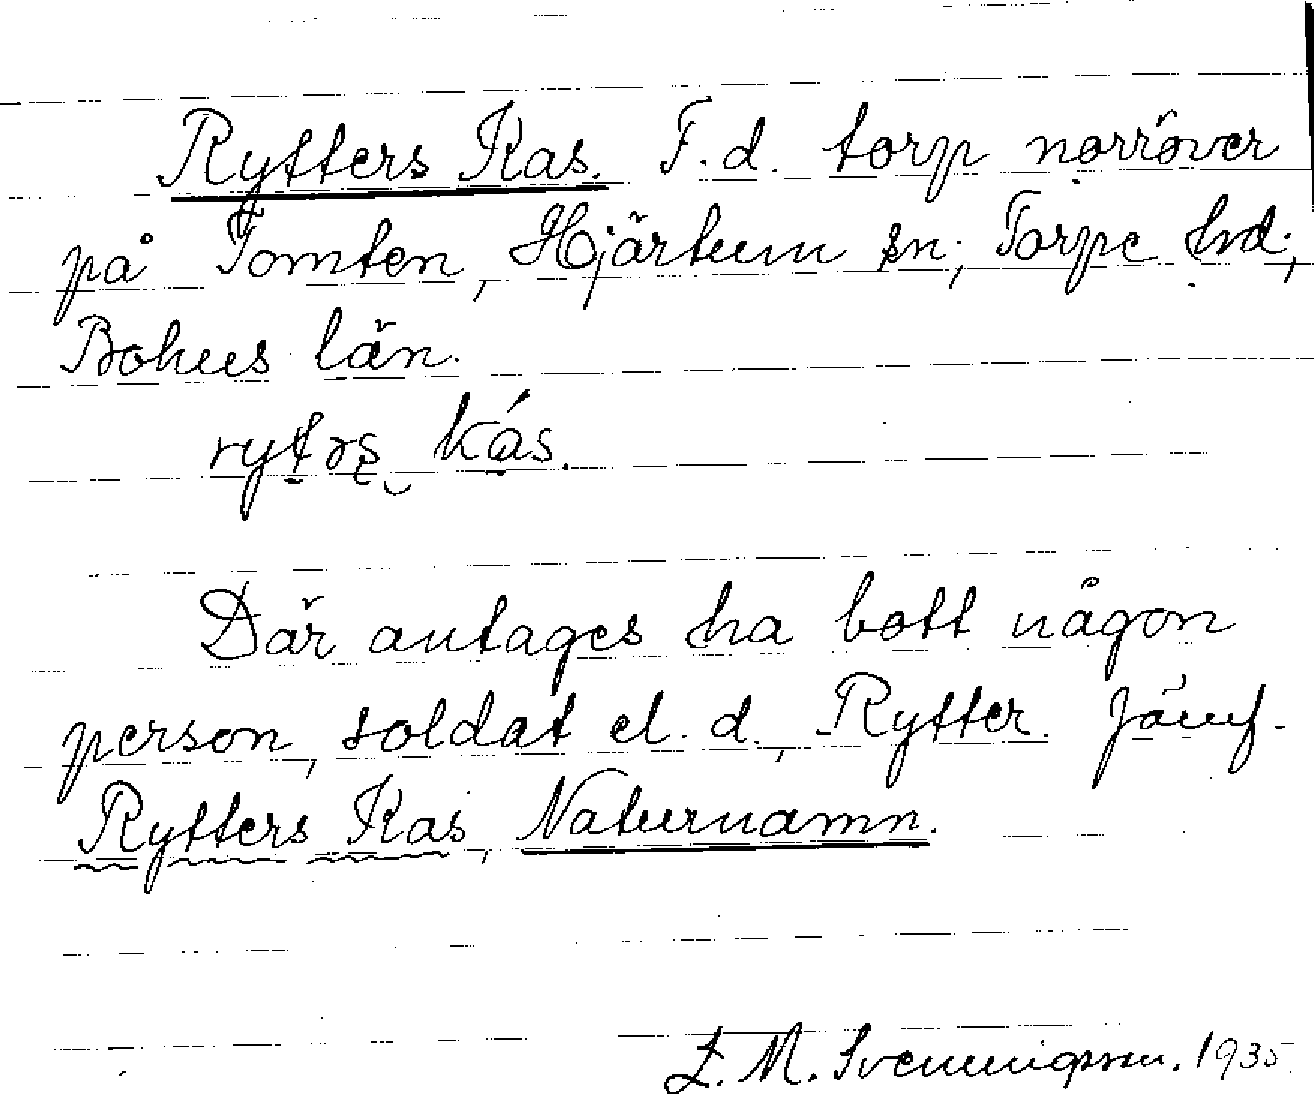 Rytters Kas. F.d. torp norröver
på Tomten, Hjärtum sn, Torpe hd,
Bohus län.
Där antages ha bott någon
person, soldat el. d., Rytter. Jämf.
Rytters Kas, Naturnamn.
1935